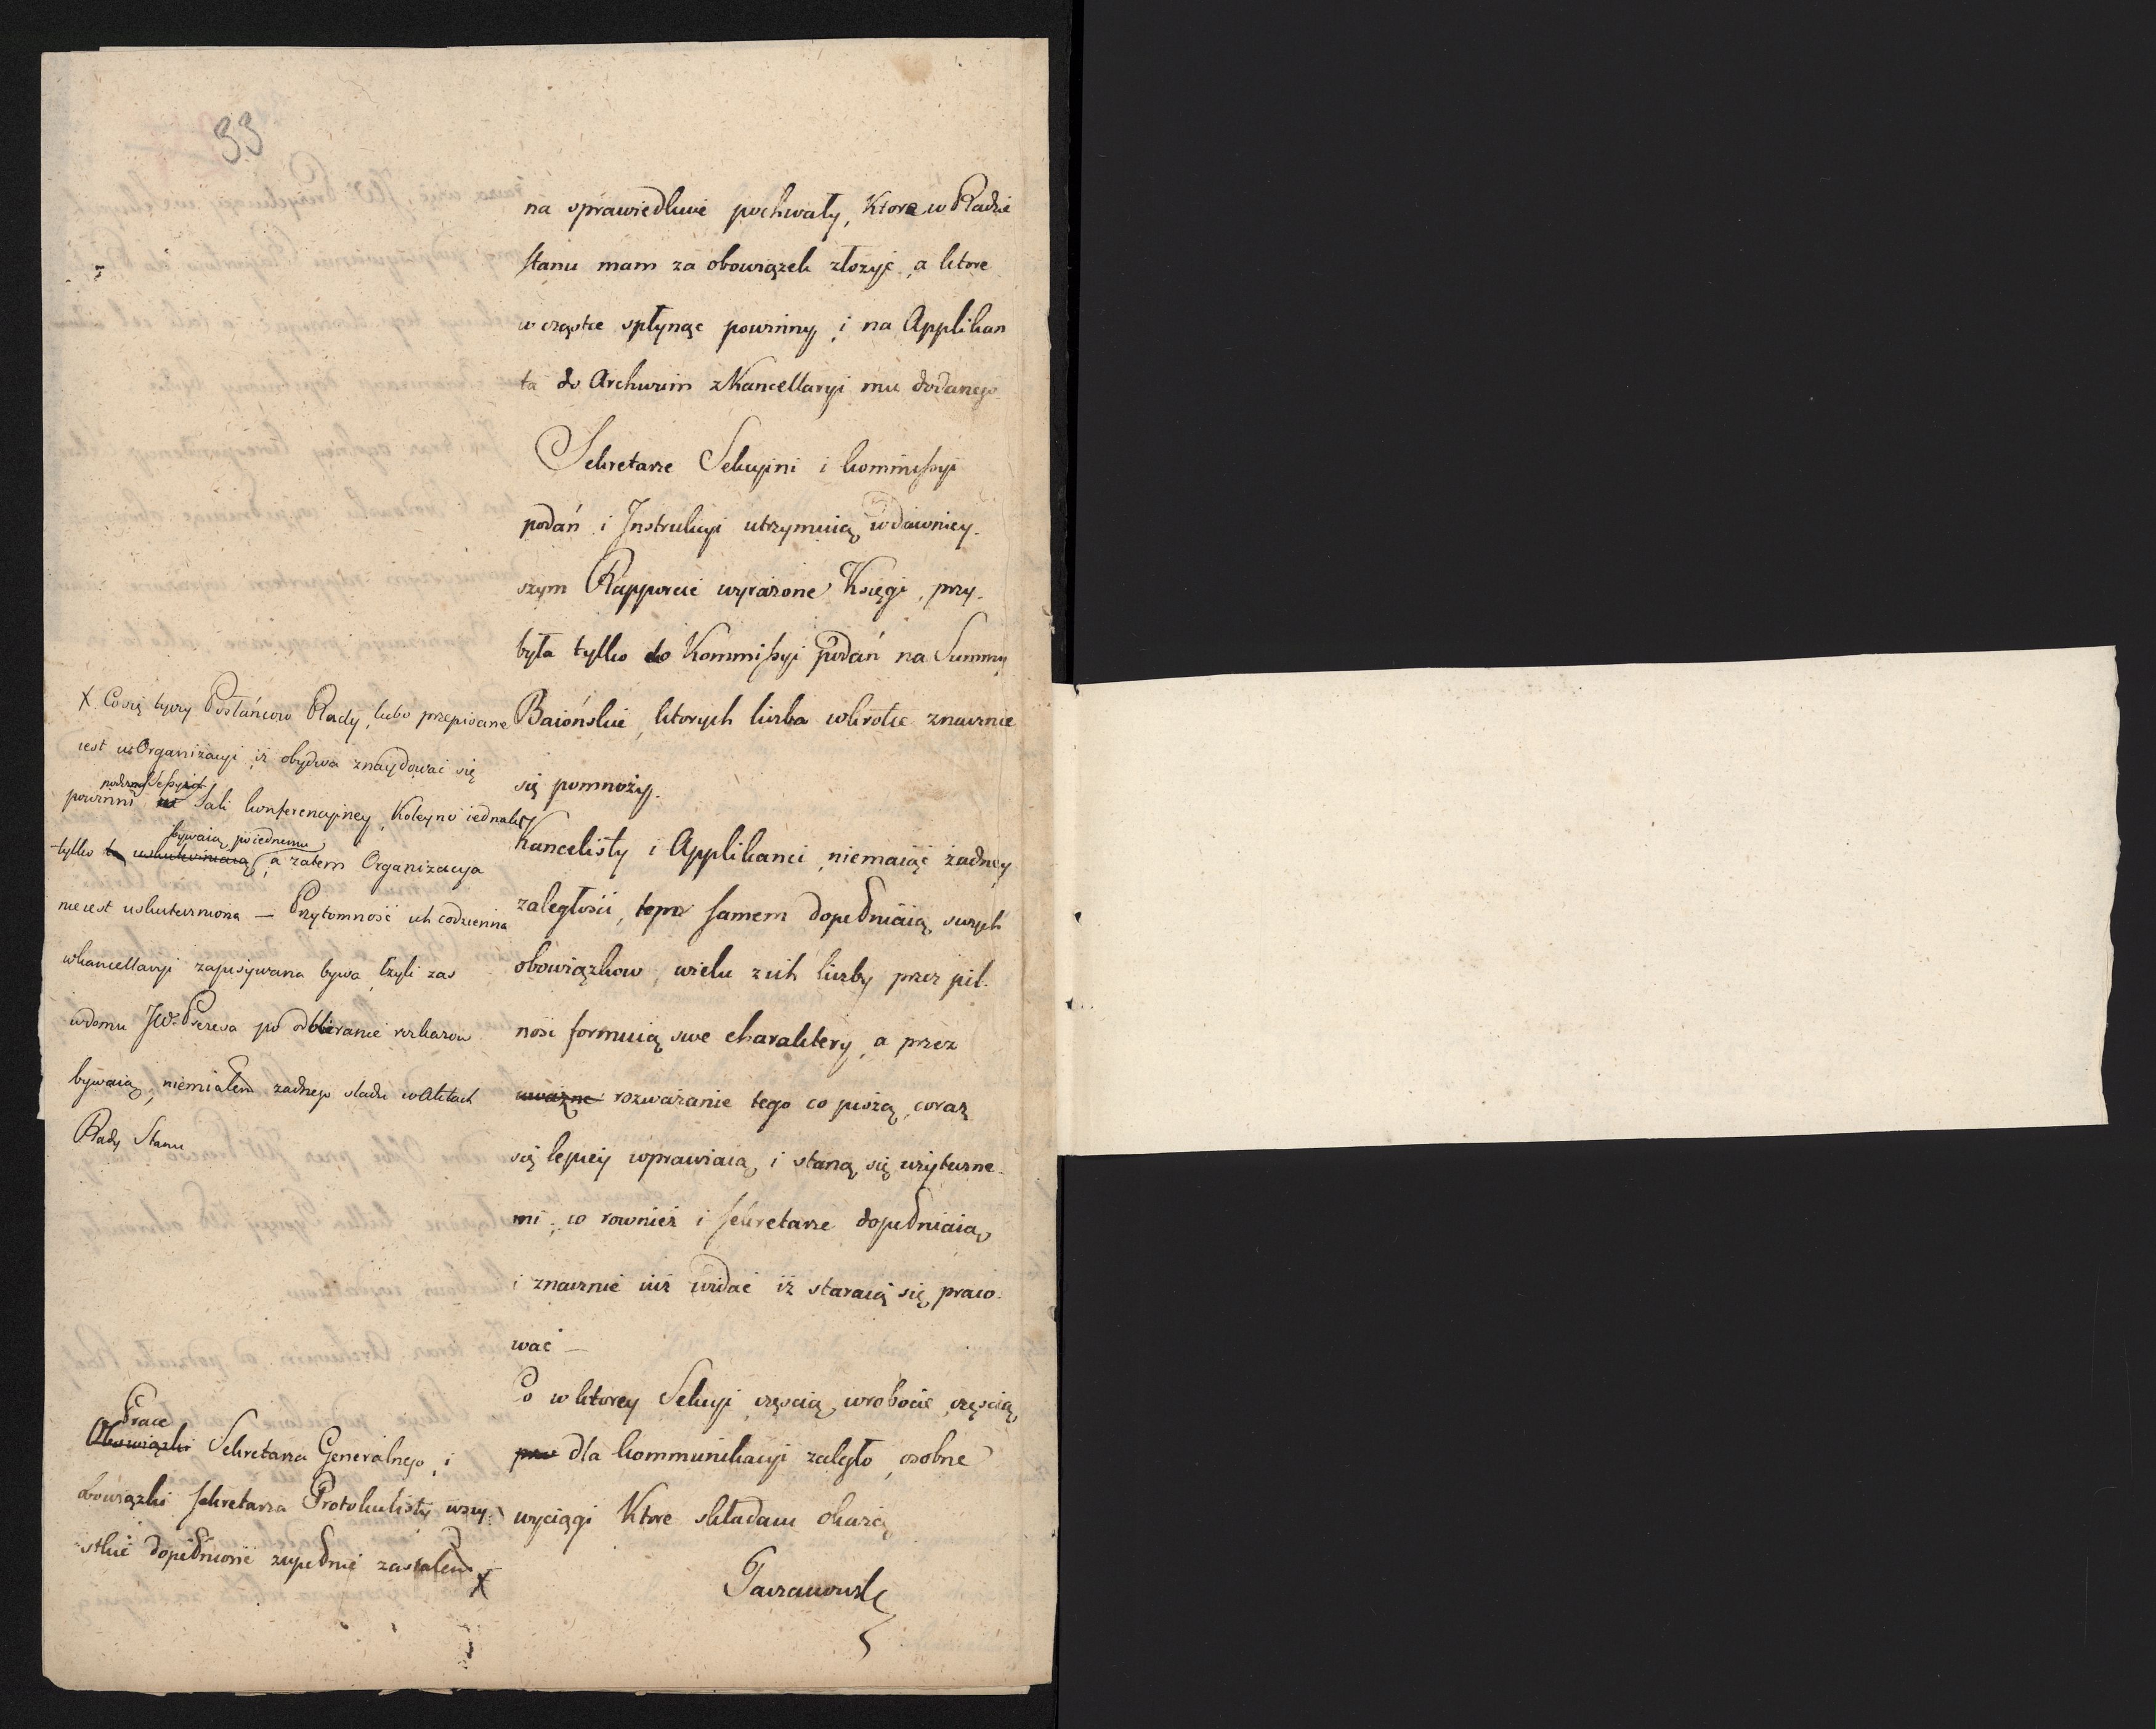 33
na sprawiedliwie pochwały, ktore w Radzie
Stanu mam za obowiązek złożyć, a ktore
w cząstce spłynąć powinny i na Applikan
ta do Archiwum z Kancellaryi mu dodanego
Sekretarze Sekcyini i kommissyi
podań i Instrukcyi utrzymuią w dawniey-
szym Rapporcie wyrażone Księgi, przy-
była tylko do Kommissyi podań na Summy
Baiońskie, ktorych liczba wkrotce znacznie
się pomnoży.
Kancelisty i Applikanci, niemaiąc żadney
zaległości, tym samem dopełniaią swych
obowiązkow, wielu z ich liczby przez pil-
ność formuią swe charaktery, a przez
uważne rozważanie tego co piszą, coraz
się lepiey wprawiaią, i staną się użyteczne-
mi, co rownież i sekretarze dopełniaią
i znacznie iuż widać iż staraią się praco-
wać —
Co w ktorey Sekcyi częścią w robocie, częścią
prze dla kommunikacyi zaległo, osobne
wyciągi ktore składam okażą
Paczanowski
X. Co się tyczy Posłańcow Rady, lubo przepisane
iest w Organizacyi, iż obydwa znaydować się
podczas Sessyiow
powinni w Sali konferencyiney, koleyno iednakże
bywaią poiednemu
tylko to uskuteczniaią, a zatem Organizacya
nie iest uskuteczniona — Przytomność ich codzienna
w kancellaryi zapisywana bywa, czyli zas
w domu JW. Prezesa po odbieranie rozkazow
bywaią, niemiałem żadnego sladu w Aktach
Rady Stanu
Prace
Obowiązki Sekretarza Generalnego, i
obowiązki sekretarza Protokulisty wszy-
stkie dopełnione zupełnie zastałem X